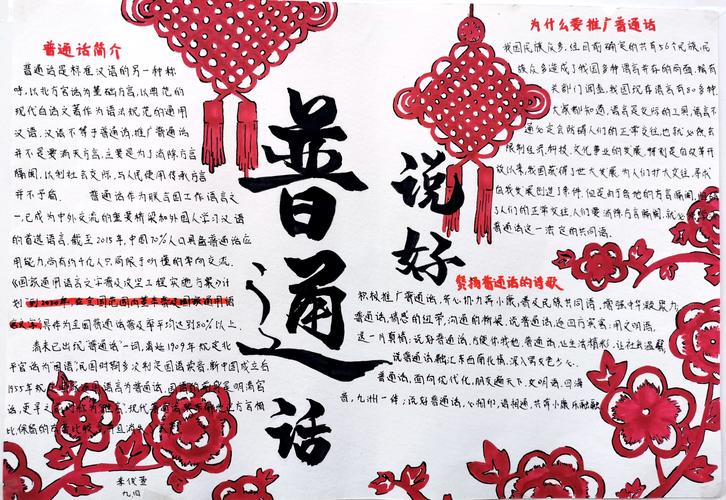 普通话简介
普通话是标准汉语的另一种称
呼,以北方官话为基础方言,以典范的
现代白话文著作为语法规范的通用
汉语。汉语不等于普通话,推广普通话
并不是要消灭方言,主要是为了消除方言
隔阂,以利社会交际,与人民使用传承方言
并不矛盾。 普通话作为联合国工作语言之
一,已成为中外交流的重要桥梁和外国人学习汉语
的首选语言。截至2015年,中国70%人口具备普通话应
用能力,尚有约4亿人只局限于听懂的单向交流。
《国家通用语言文字普及攻坚工程实施方案》计
划到2020年,在全国范围内基本普及国家通用语
言文字,具体为全国普通话普及率平均达到80%以上。
清末已出现"普通话"一词,清廷1909年规定北
平官话为"国语",民国时期多次制定国语读音,新中国成立后
1955年
普通话
说好
为什么要推广普通话
我国民族众多,经目前确定的共有56个民族,民
族众多造成了我国多种语言并存的局面,据有
关部门调查,我国现存语言有80多种。
大家都知道,语言是交际的工具,语言不
通必定会防碍人们的正常交往,也就必然会
限制经济、科技、文化事业的发展,特别是自改革开
放以来,我国获得了空大发展,为人们扩大交往,寻求
自我发展创造了条件,但是由于各地的方言隔阂,
了人们的正常交往,人们要消除方言隔阂,就必
普通话这一法定的共同语。
赞扬普通话的诗歌
积极推广普通话,齐心协力奔小康,普及民族共同语,增强中华凝聚力
普通话,情感的纽带,沟通的桥梁,说普通话,迎四方宾客;用文明语,
送一片真情;说好普通话,方便你我他,普通话,让生活精彩,让社会温馨,
说普通话融汇东西南北情,深入男女老少心。
普通话,面向现代化,朋友遍天下,文明语,四海
春,九洲一体;说好普通话,心相印,语相通,共奔小康乐融融
九